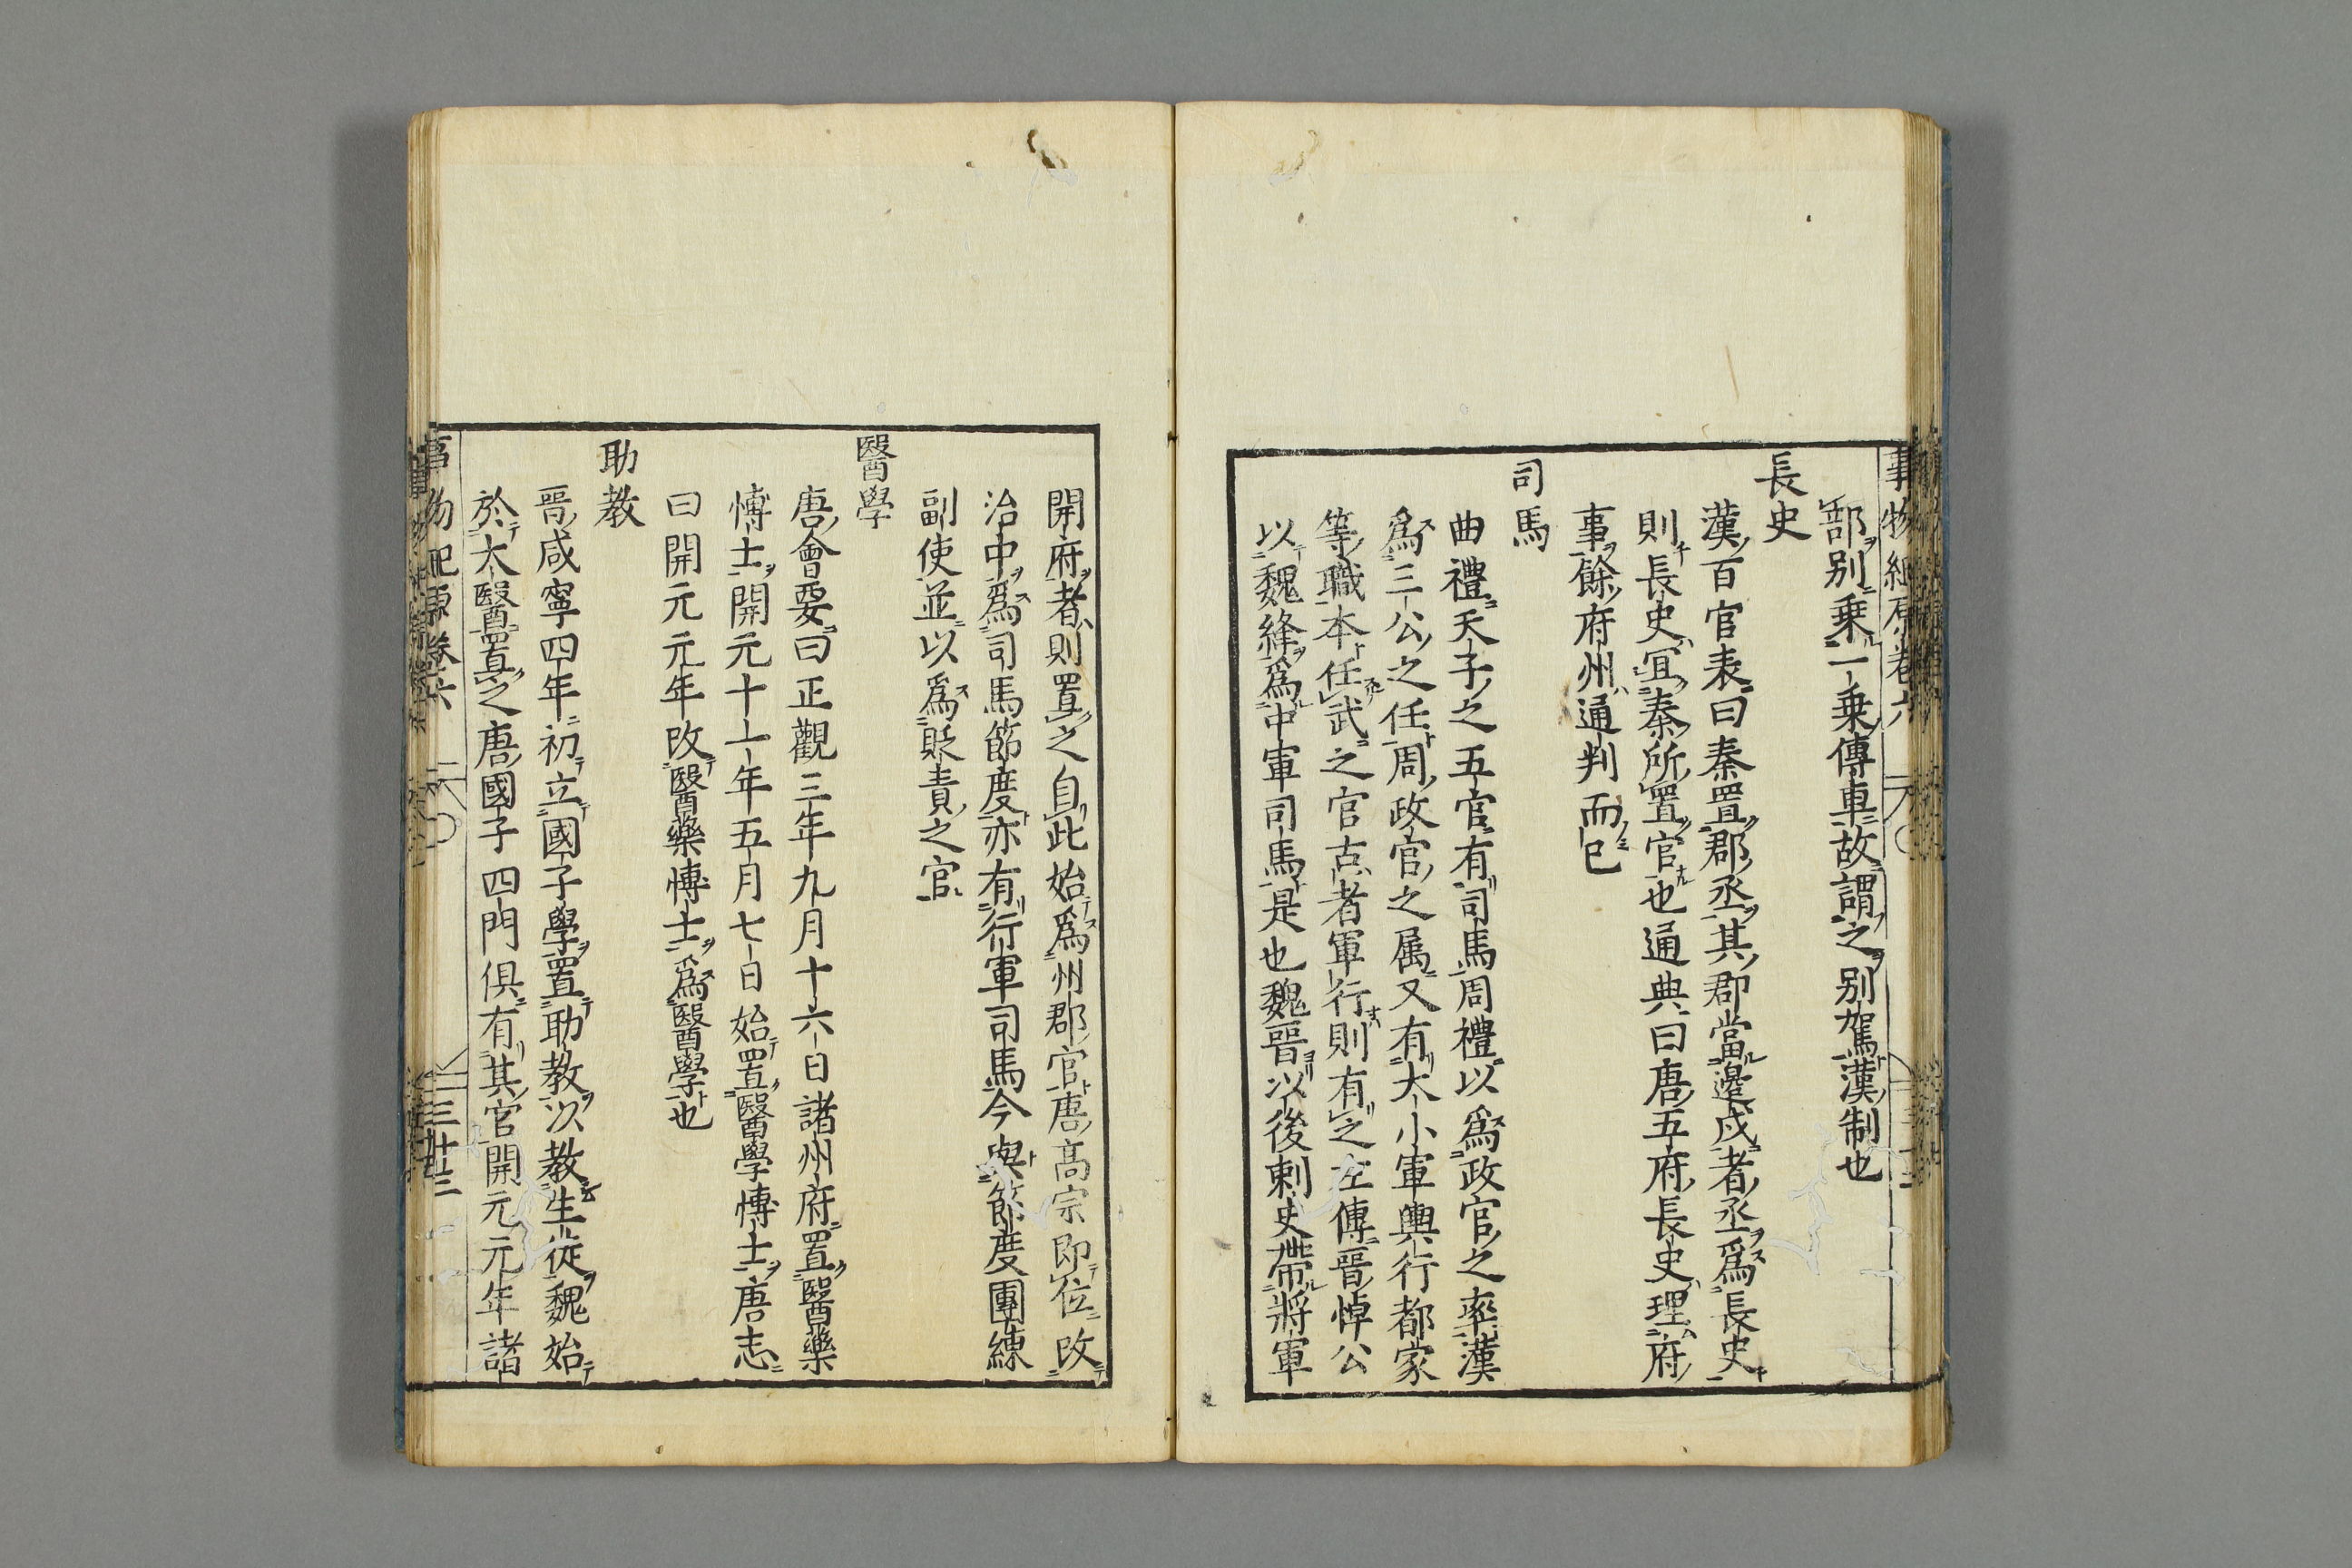 事物紀原卷六
部别乗一乗傳車故謂之别駕漢制也
長史
漢百官表曰秦置郡丞其郡當邊戍者丞爲長史
則長史冝秦所置官也通典曰唐五府長史理府
事餘府州通判而已
司馬
曲禮天子之五官有司馬周禮以爲政官之率漢
爲三公之任周政官之属又有大小軍輿行都家
等職本任武之官古者軍行則有之左傳晉悼公
以魏絳爲中軍司馬是也魏晉以後刺史帶將軍
開府者則置之自此始爲州郡官唐髙宗即位改
治中爲司馬節度亦有行軍司馬今與節度團練
副使並以爲貶責之官
醫學
唐會要曰正觀三年九月十六日諸州府置醫藥
博士開元十一年五月七日始置醫學博士唐志
曰開元元年改醫藥博士爲醫學也
助教
晉咸寧四年初立國子學置助教以教生從魏始
於太醫置之唐國子四門俱有其官開元元年諸
事物紀原卷六